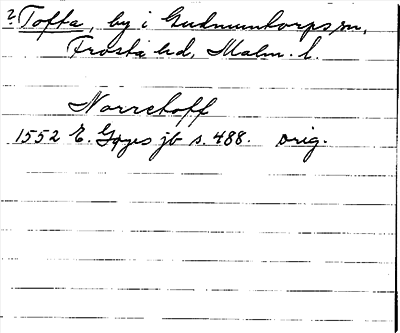 ? Tofta, by i Gudmuntorps sn,
Frosta hd, Malm. l.
Norretofft
1552 E. Gøyes jb s. 488. orig.